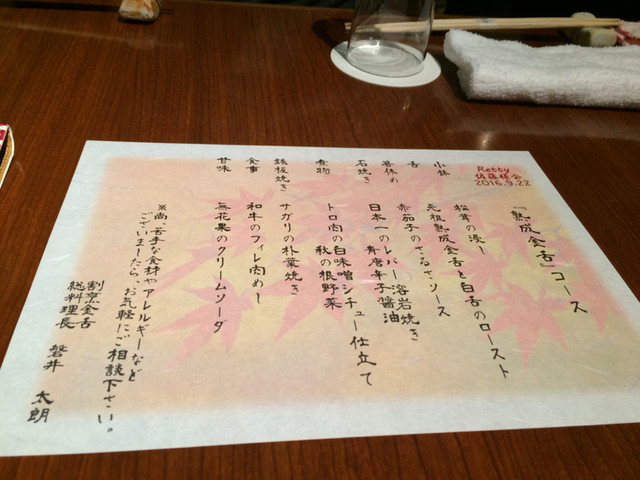 Retty
佐藤様会
2016.9.22
『熟成金舌』コース
小鉢 松茸の浸し
舌 元祖熟成金舌と白舌のロースト
箸休め 赤茄子のさるさソース
石焼き 日本一のレバー溶岩焼き
青唐辛子醤油
煮物 トロ肉の白味噌シチュー仕立て
秋の根野菜
鉄板焼き サガリの朴葉焼き
食事 和牛のフィレ肉めし
甘味 無花果のクリームソーダ
※尚、苦手な食材やアレルギーなど
ございましたら、お気軽にご相談下さい。
割烹金舌
総料理長 磐井 太朗